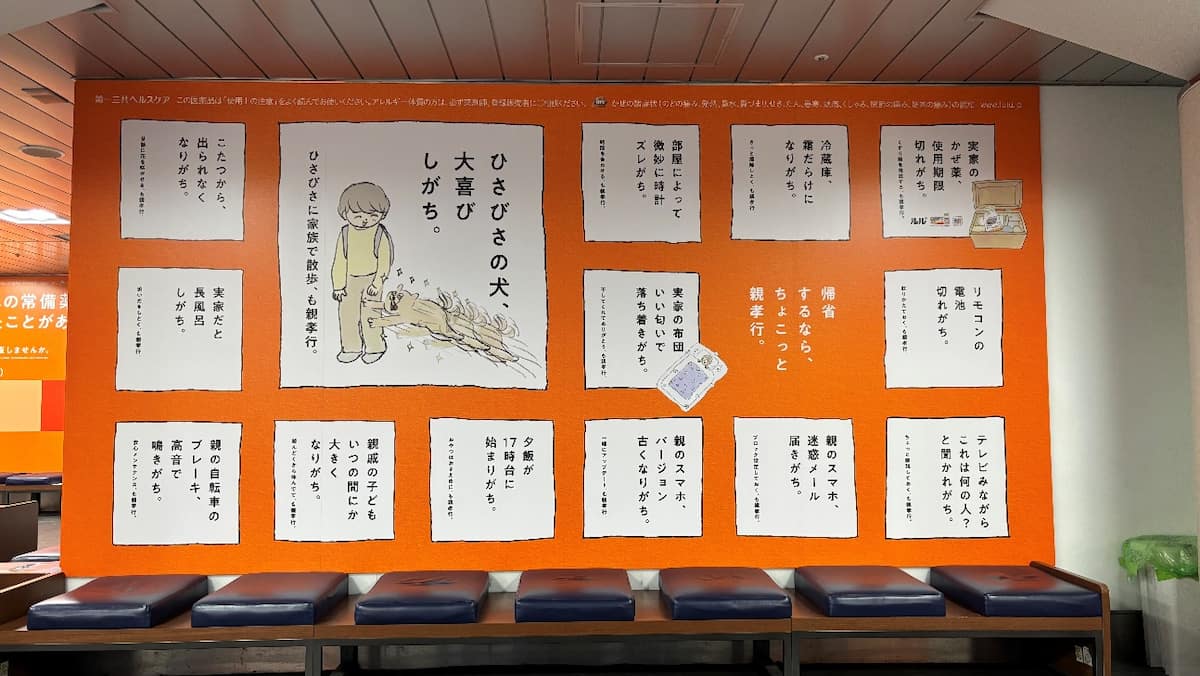 第一三共ヘルスケア この医薬品は「使用上の注意」をよく読んでお使いください。アレルギー体質の方は、必ず薬剤師、登録販売者にご相談ください。
実家の
かぜ薬、
使用期限
切れがち。
ルル
冷蔵庫、
霜だらけに
なりがち。
部屋によって
微妙に時計
ズレがち。
時計を合わせる、も親孝行。
ひさびさの犬、
大喜び
しがち。
ひさびさに家族で散歩、も親孝行。
こたつから、
出られなく
なりがち。
リモコンの
電池
切れがち。
帰省
するなら、
ちょこっと
親孝行。
実家の布団
いい匂いで
落ち着きがち。
干してくれてありがとう、も親孝行。
実家だと
長風呂
しがち。
テレビみながら
これは何の人?
と聞かれがち。
ちょっと解説しておく、も親孝行。
親のスマホ、
迷惑メール
届きがち。
ブロック設定しておく、も親孝行。
親のスマホ、
バージョン
古くなりがち。
一緒にアップデート、も親孝行。
夕飯が
17時台に
始まりがち。
親戚の子ども
いつの間にか
大きく
なりがち。
親の自転車の
ブレーキ、
高音で
鳴きがち。
の常備薬
たことがあ
直しませんか。